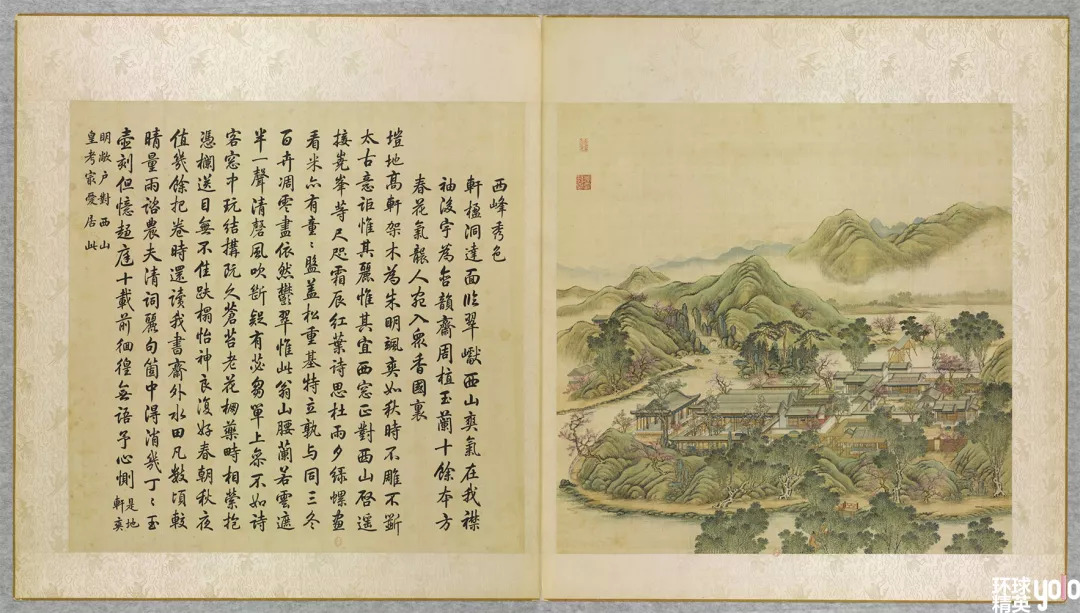 西峰秀色
軒楹洞達面臨翠巘西山爽氣在我襟
袖後宇為含韻齋周植玉蘭十餘本方
春花氣襲人宛入眾香國裏
塏地高軒架木為朱明颯爽如秋時不雕不斵
太古意詎惟其麗惟其宜西窓正對西山啓遥
接嶤峯等尺咫霜辰紅葉詩思杜雨夕綠螺畫
看米亦有童〻盤盖松重基特立孰與同三冬
百卉凋零盡依然鬱翠惟此翁山腰蘭若雲遮
半一聲清磬風吹斷疑有苾芻單上參不如詩
客窓中玩結搆既久蒼苔老花欄藥時相縈抱
憑欄送目無不佳趺榻怡神良復好春朝秋夜
值幾餘把卷時還讀我書齋外水田凡數頃較
晴量雨諮農夫清詞麗句箇中得消幾丁〻玉
壺刻但憶趨庭十載前徊徨無語予心惻
是地
軒爽
明敞户對西山
皇考㝡愛居此
环球
精英
yolo